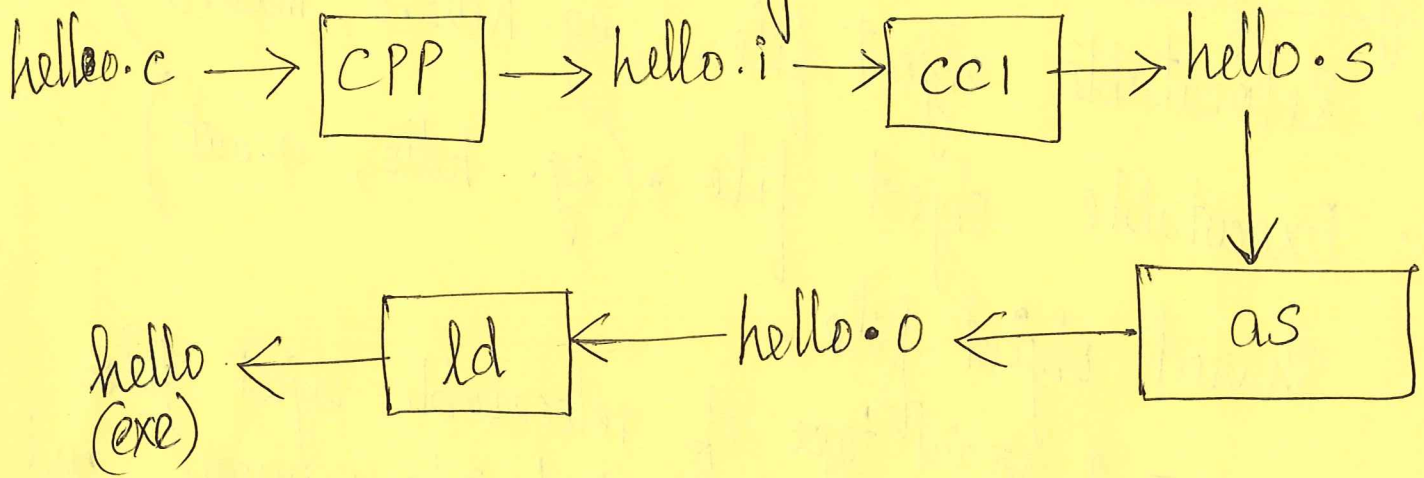 hello.c → CPP → hello.i → CC1 → hello.s
as
hello.o
ld
hello
(exe)